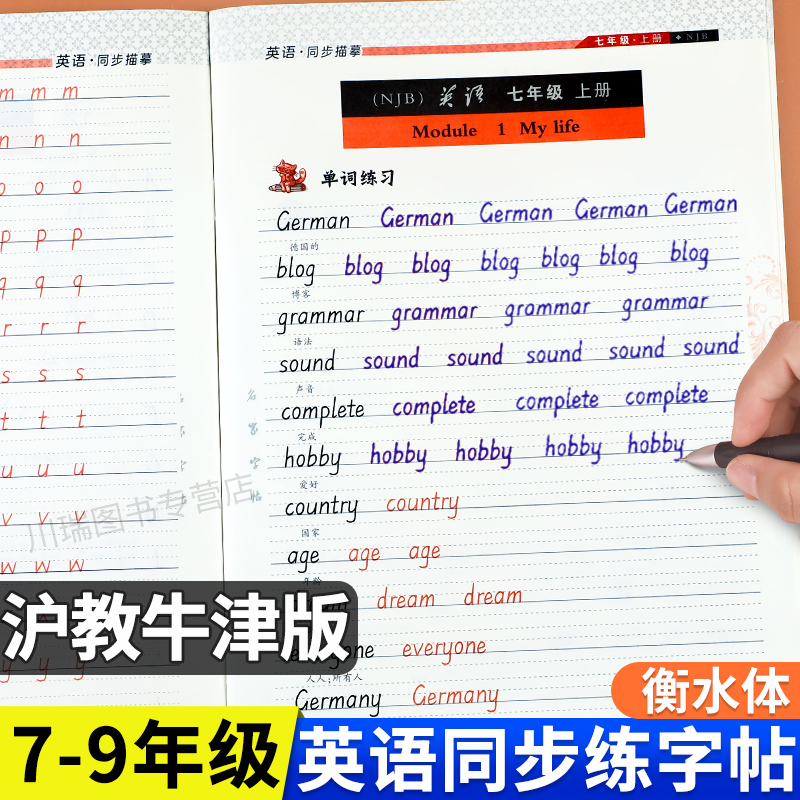 英语·同步描摹
m m m
n n n
o o o
p p p
q q q
r r r
s s s
t t t
u u u
v v v
w w w
y y y
英语·同步描摹
七年级·上册 NJB
(NJB) 英语 七年级 上册
Module 1 My life
单词练习
German German German German German
德国的
blog blog blog blog blog blog blog
博客
grammar grammar grammar grammar
语法
sound sound sound sound sound sound
声音
complete complete complete complete
完成
hobby hobby hobby hobby hobby
爱好
country country
国家
age age age
年龄
dream dream
everyone
人人;所有人
Germany Germany
名家字帖
川瑞图书专营店
沪教牛津版
衡水体
7-9年级
英语同步练字帖